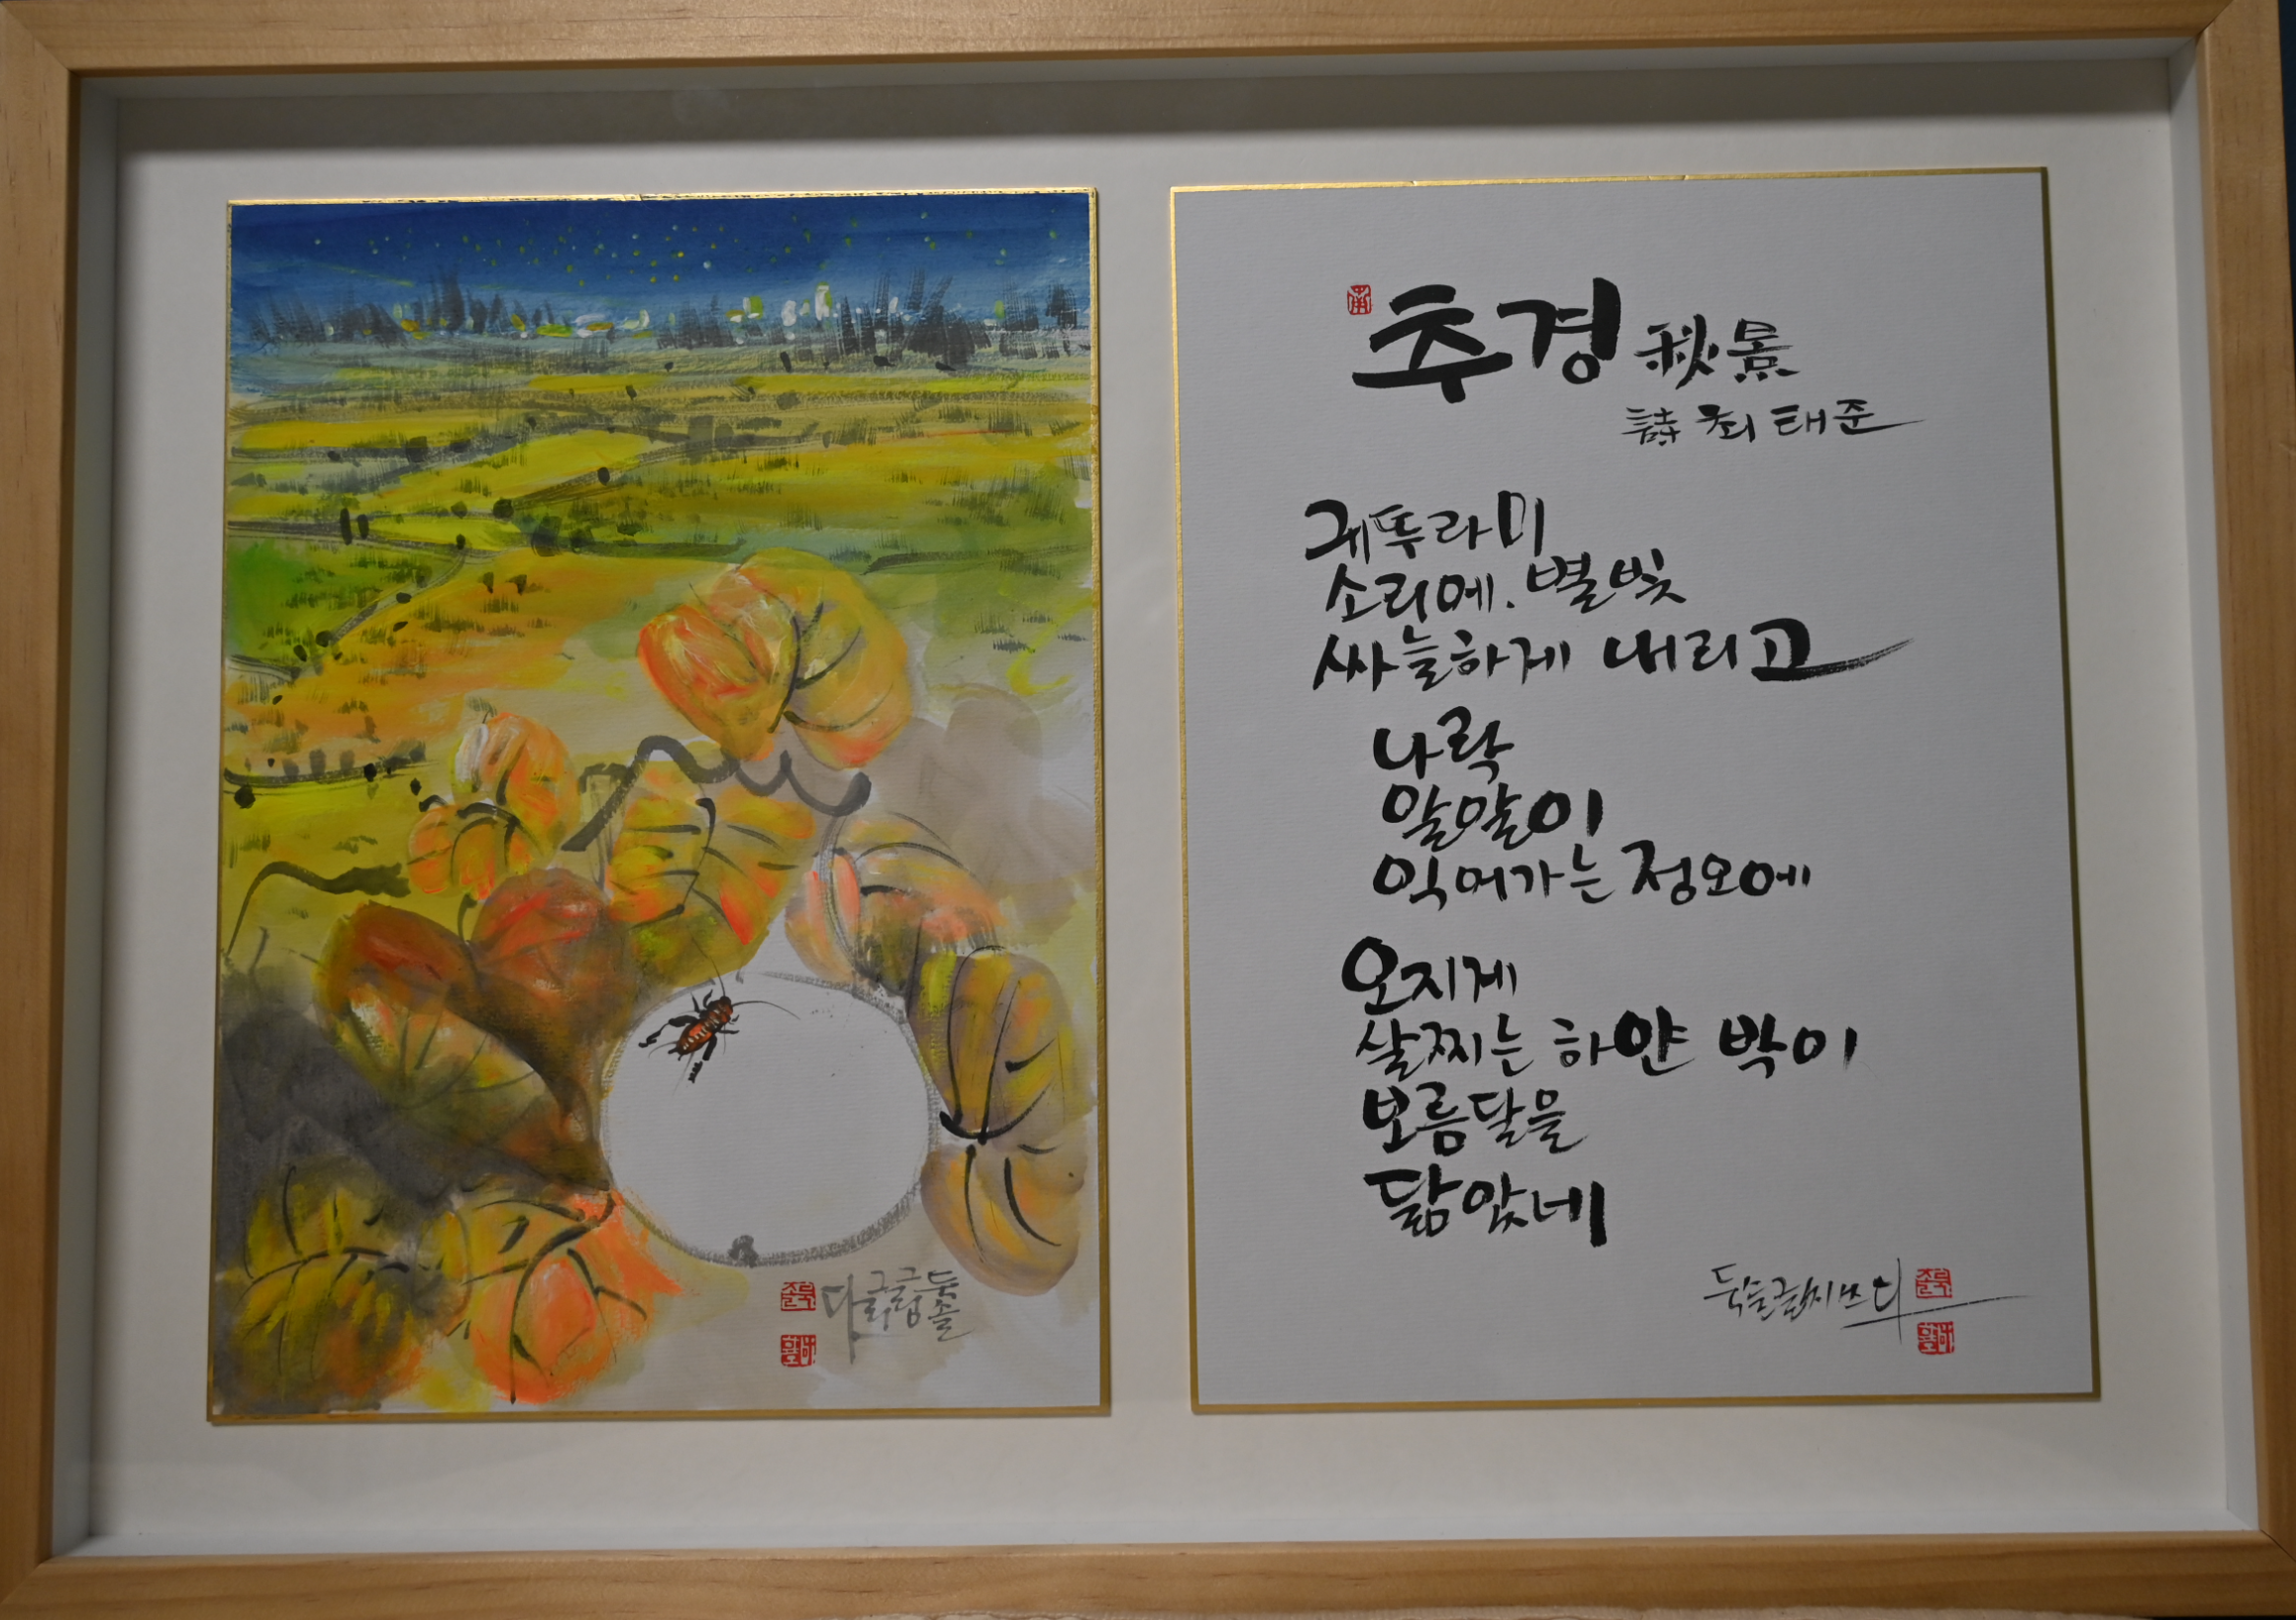 추경 秋景
詩 최태준
귀뚜라미
소리에. 별빛
싸늘하게 내리고
나락
알알이
익어가는 정오에
오지게
살찌는 하얀 박이
보름달을
닮았네